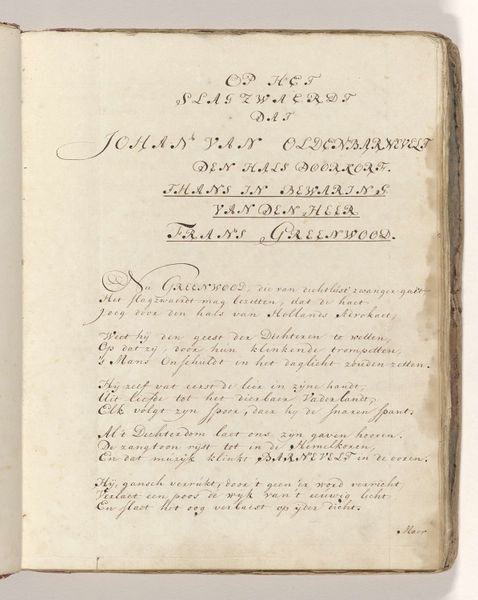 OP HET
SLAGZWAERDT
DAT
JOHAN VAN OLDENBARNEVELT
DEN HALS DOORKORF.
THANS IN BEWARING
VAN DEN HEER
FRANS GREENWOOD.
Nu GREENWOOD, die van dichtlust zwanger gaet
Het slagzwaerdt mag bezitten, dat de haet
Joeg door den hals van Hollands
Weet hij den geest der Dichteren te wetten,
Op dat zy, door hun klinkende trompetten,
's Mans Onschuldt in het daglicht zouden zetten.
Hij zelf vat eerst de lier in zyne handt,
Uit liefde tot het dierbaer Vaderlandt,
Elk volgt zyn spoor, daer hy de snaren spant.
Al 't Dichterdom laet ons zyn gaven hooren.
De zangtoon rijst tot in de Hemelkoren,
En dat muzijk klinkt BARNEVELT in de ooren.
Hij, gansch verrukt, door 't geen 'er word verricht,
Verlaet een poos de wyk van 't eeuwig licht
En slaet het oog verbaest op ijder dicht.
Maer